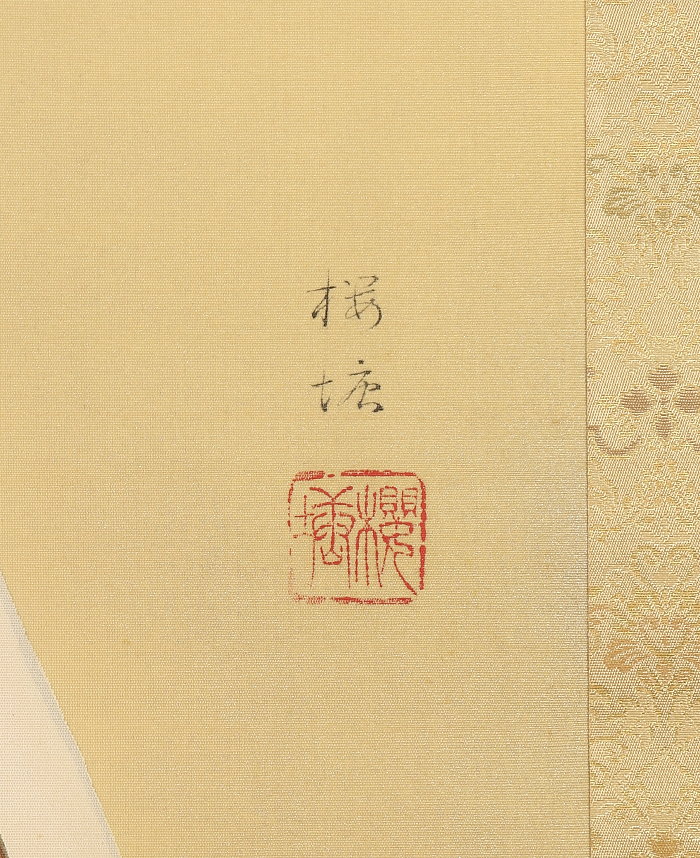 桜
塘
櫻塘